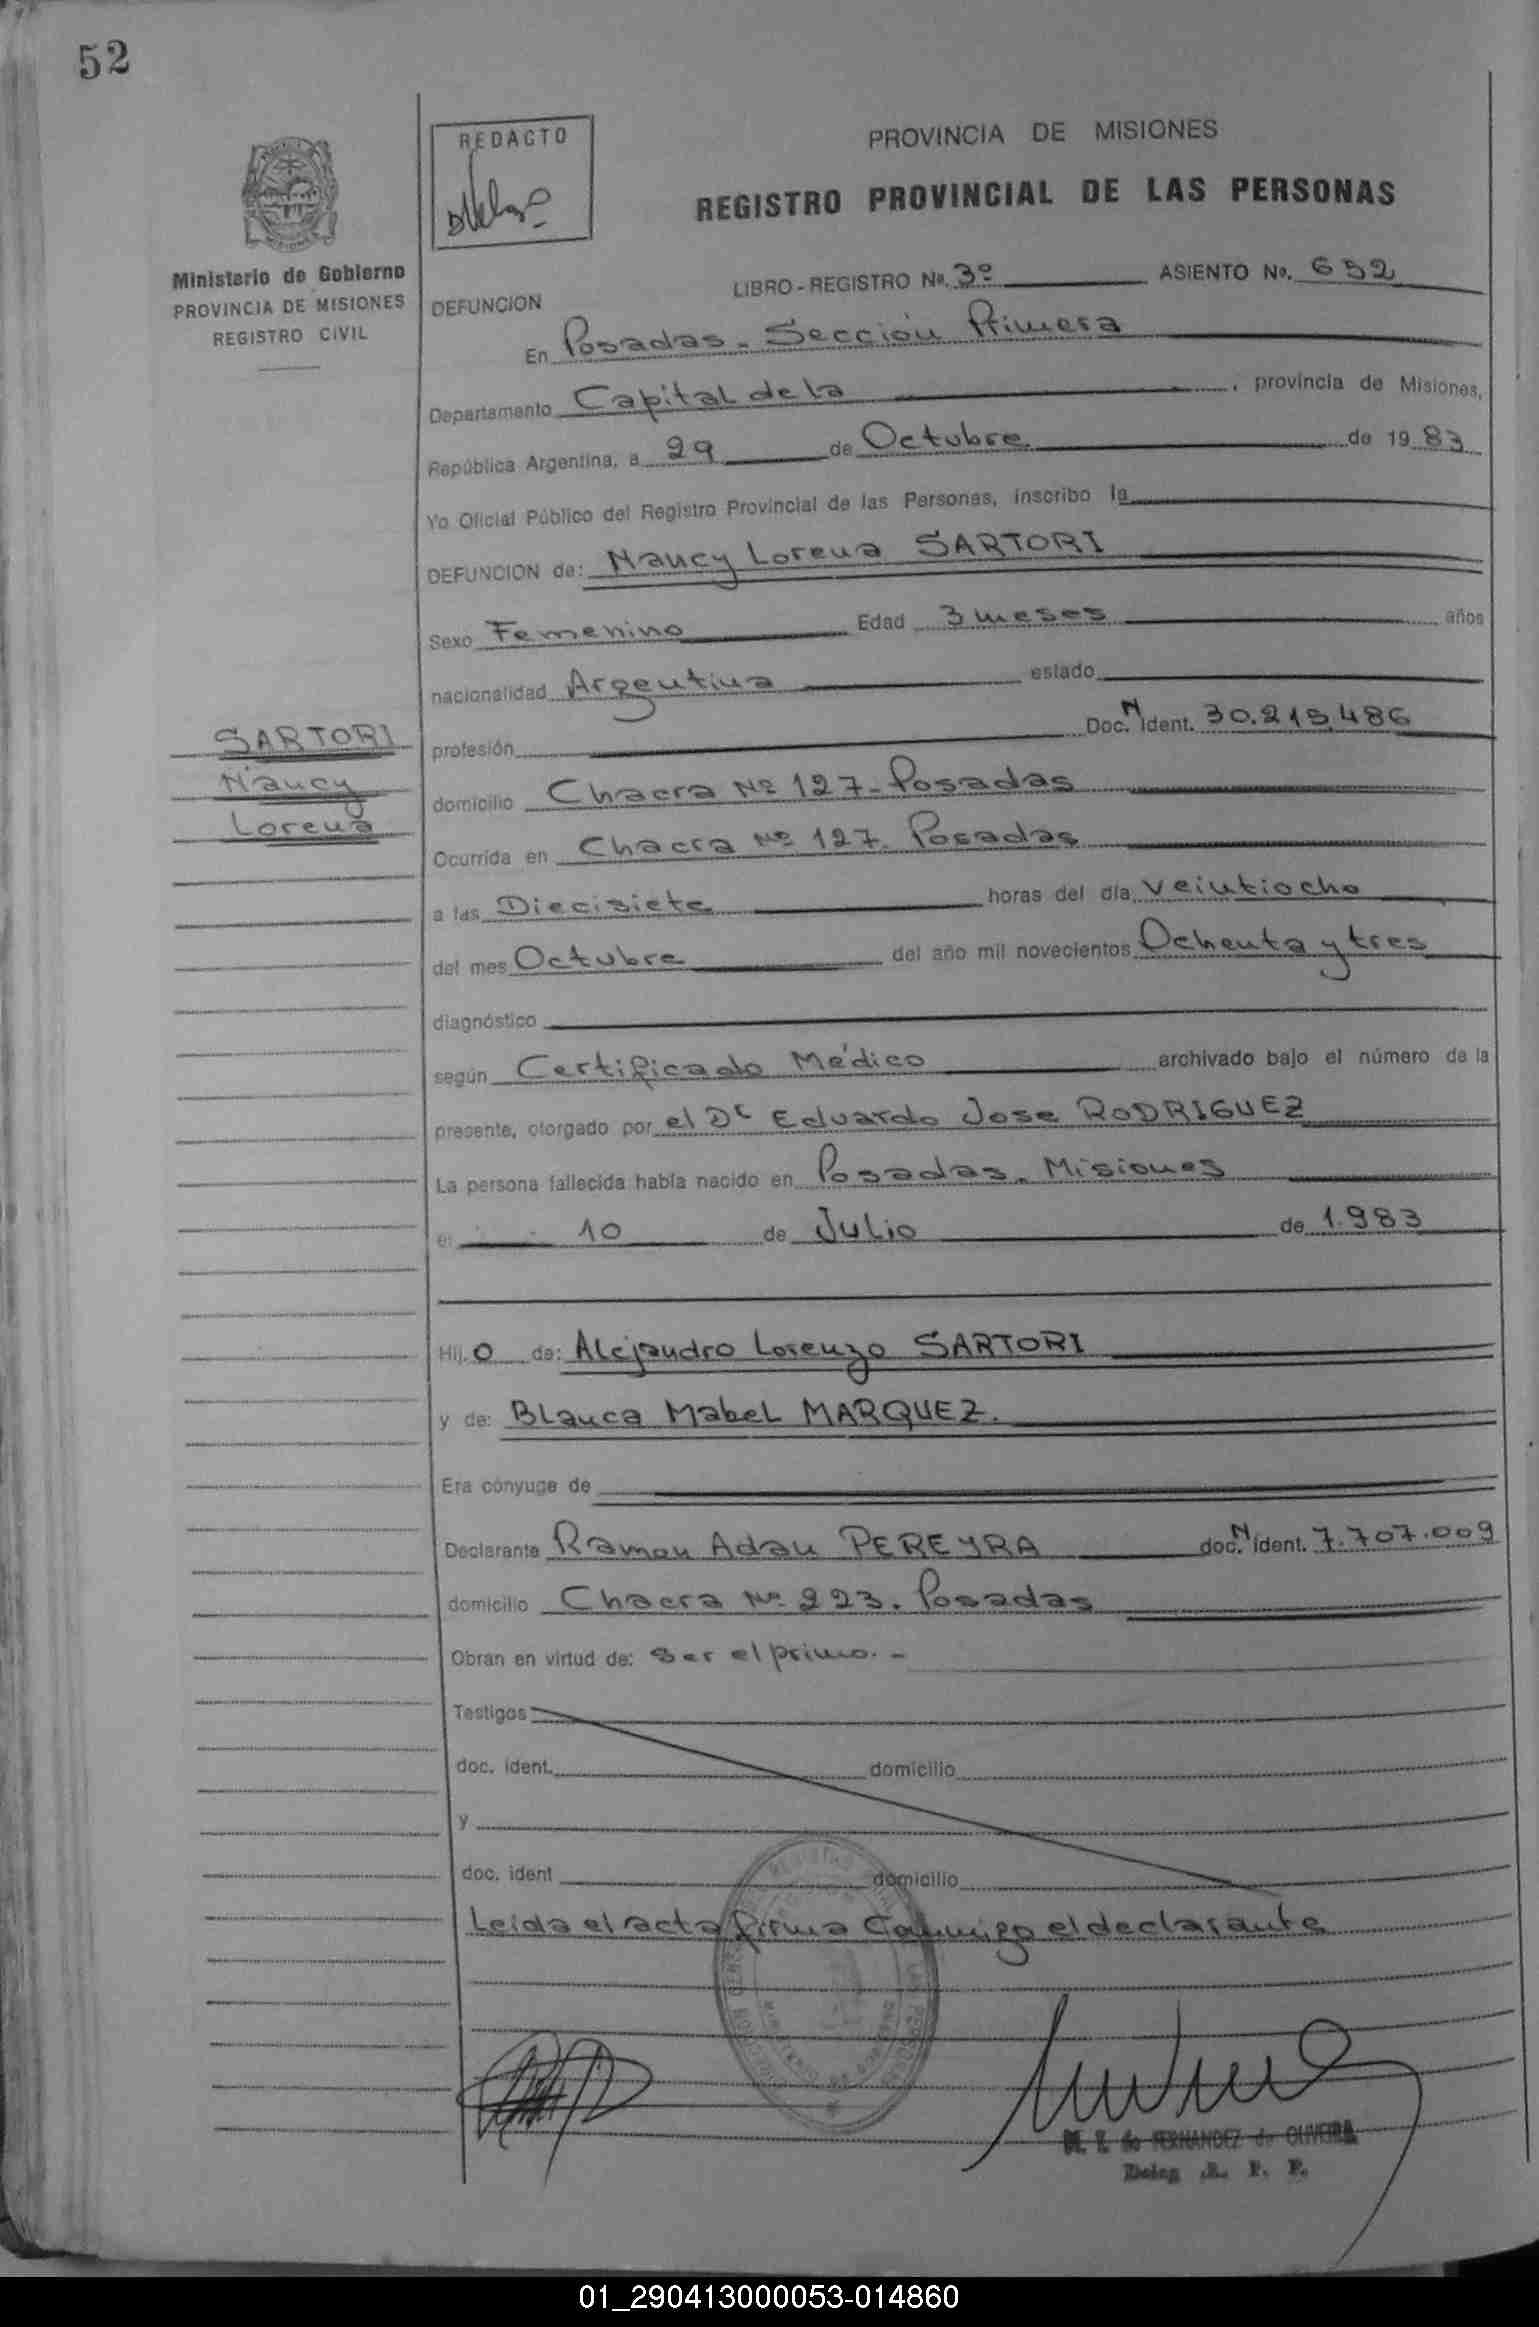 52
REDACTO
PROVINCIA DE MISIONES
REGISTRO PROVINCIAL DE LAS PERSONAS
Ministerio de Gobierno
PROVINCIA DE MISIONES
REGISTRO CIVIL
LIBRO - REGISTRO No. 3º ASIENTO No. 652
DEFUNCION
En Posadas - Sección Primera
Departamento Capital de la , provincia de Misiones,
República Argentina, a 29 de Octubre de 19 83
Yo Oficial Público del Registro Provincial de las Personas, inscribo la
DEFUNCION de: Nancy Lorena SARTORI
Sexo Femenino Edad 3 meses años
nacionalidad Argentina estado
profesión Doc. N Ident. 30.215.486
SARTORI
Nancy
Lorena
domicilio Chacra Nº 127 - Posadas
Ocurrida en Chacra Nº 127. Posadas
a las Diecisiete horas del día Veintiocho
del mes Octubre del año mil novecientos Ochenta y tres
diagnóstico
según Certificado Médico archivado bajo el número de la
presente, otorgado por el Dr Eduardo Jose RODRIGUEZ
La persona fallecida había nacido en Posadas - Misiones
el 10 de Julio de 1.983
Hij o de: Alejandro Lorenzo SARTORI
y de: Blanca Mabel MARQUEZ.
Era cónyuge de
Declarante Ramon Adan PEREYRA doc. N ident. 7.707.009
domicilio Chacra Nº 223. Posadas
Obran en virtud de: Ser el primo. -
Testigos
doc. ident. domicilio
y
doc. ident domicilio
Leida el acta firma Conmigo el declarante
M. T. de FERNANDEZ de OLIVEIRA
Deleg. R. P. P.
01_290413000053-014860